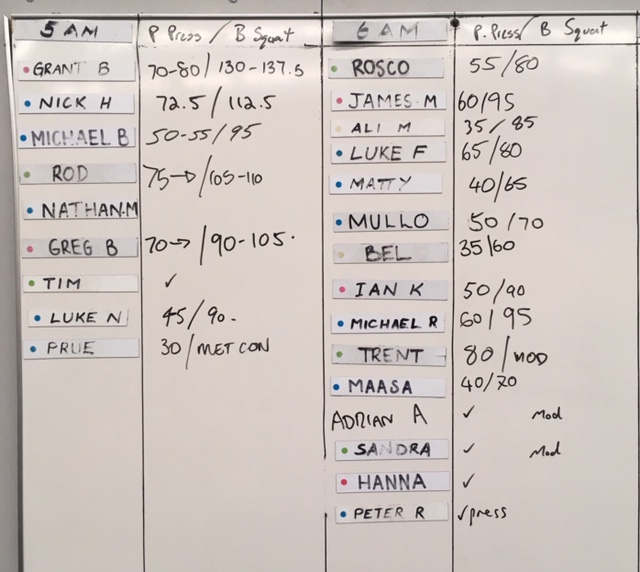 5 AM P Press / B Squat
GRANT B 70-80 / 130-137.5
NICK H 72.5 / 112.5
MICHAEL B 50-55 / 95
ROD 75→ / 105-110
NATHAN.M
GREG B 70→ / 90-105.
TIM ✓
LUKE N 45 / 90.
PRUE 30 / MET CON
6 AM P. Press / B Squat
ROSCO 55/80
JAMES M 60/95
ALI M 35 / 85
LUKE F 65/80
MATTY 40/65
MULLO 50 / 70
BEL 35/60
IAN K 50/90
MICHAEL R 60 / 95
TRENT 80 / MOD
MAASA 40/70
ADRIAN A ✓ Mod
SANDRA ✓ Mod
HANNA ✓
PETER R ✓press